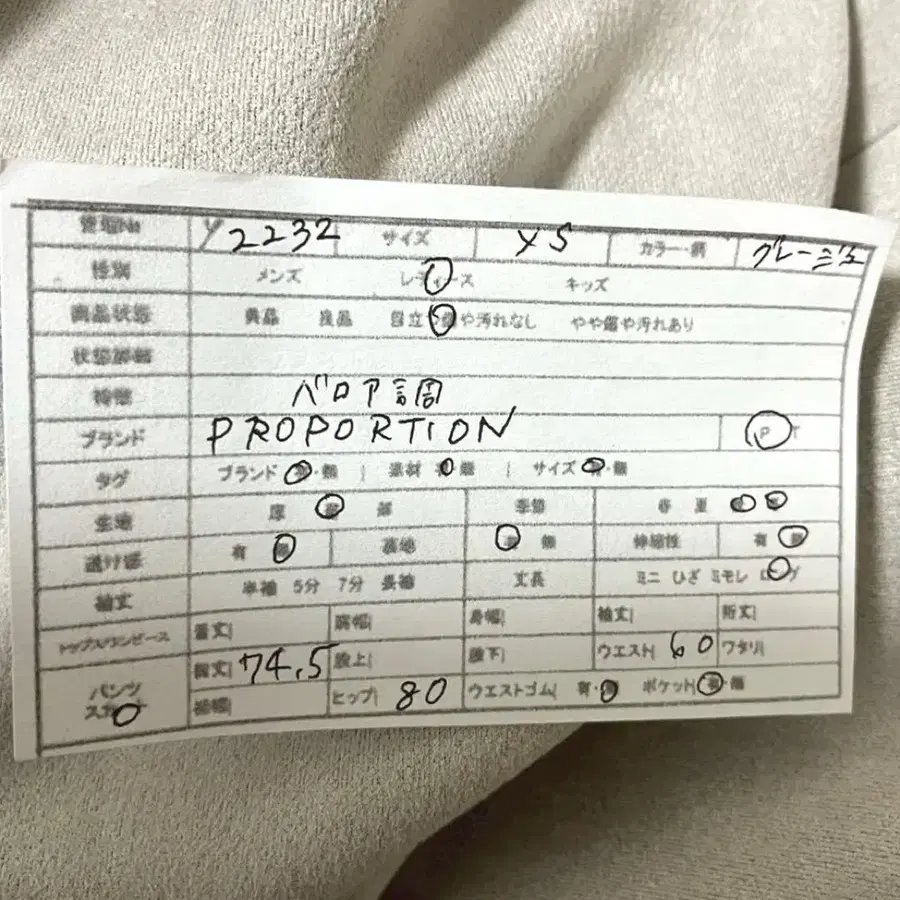 管理No Y2232 サイズ XS カラー・柄 グレージュ
性別 メンズ レディース キッズ
商品状態 美品 良品 目立つ傷や汚れなし やや傷や汚れあり
状態詳細
特徴 バロア調
ブランド PROPORTION P T
タグ ブランド 有・無 | 素材 有・無 | サイズ 有・無
生地 厚 普 薄 季節 春 夏 秋 冬
透け感 有 無 裏地 有 無 伸縮性 有 無
袖丈 半袖 5分 7分 長袖 丈長 ミニ ひざ ミモレ ロング
トップス/ワンピース 着丈| 肩幅| 身幅| 袖丈| 裄丈|
パンツ スカート 総丈| 74.5 股上| 股下| ウエスト| 60 ワタリ|
裾幅| ヒップ| 80 ウエストゴム| 有・無 ポケット| 有・無